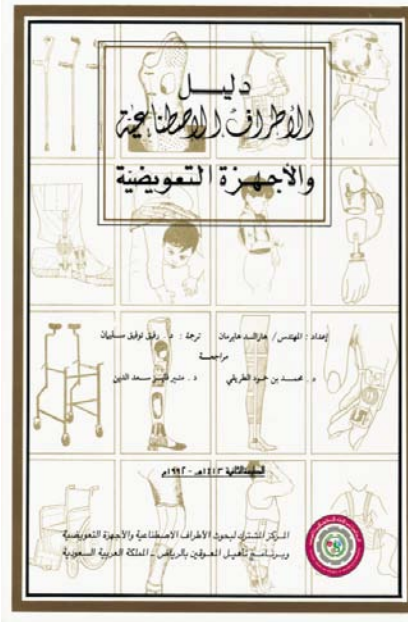 دليل
الأطراف الاصطناعية
والأجهزة التعويضية
إعداد : المهندس / هارالد هايرمان ترجمة : د . رفيق توفيق سليمان
مراجعة
د . محمد بن حمود الطريقي د . منير سعد الدين
الطبعة الثانية ١٤١٣هـ - ١٩٩٢م
المركز المشترك لبحوث الأطراف الاصطناعية والأجهزة التعويضية
وبرنامج تأهيل المعوقين بالرياض - المملكة العربية السعودية